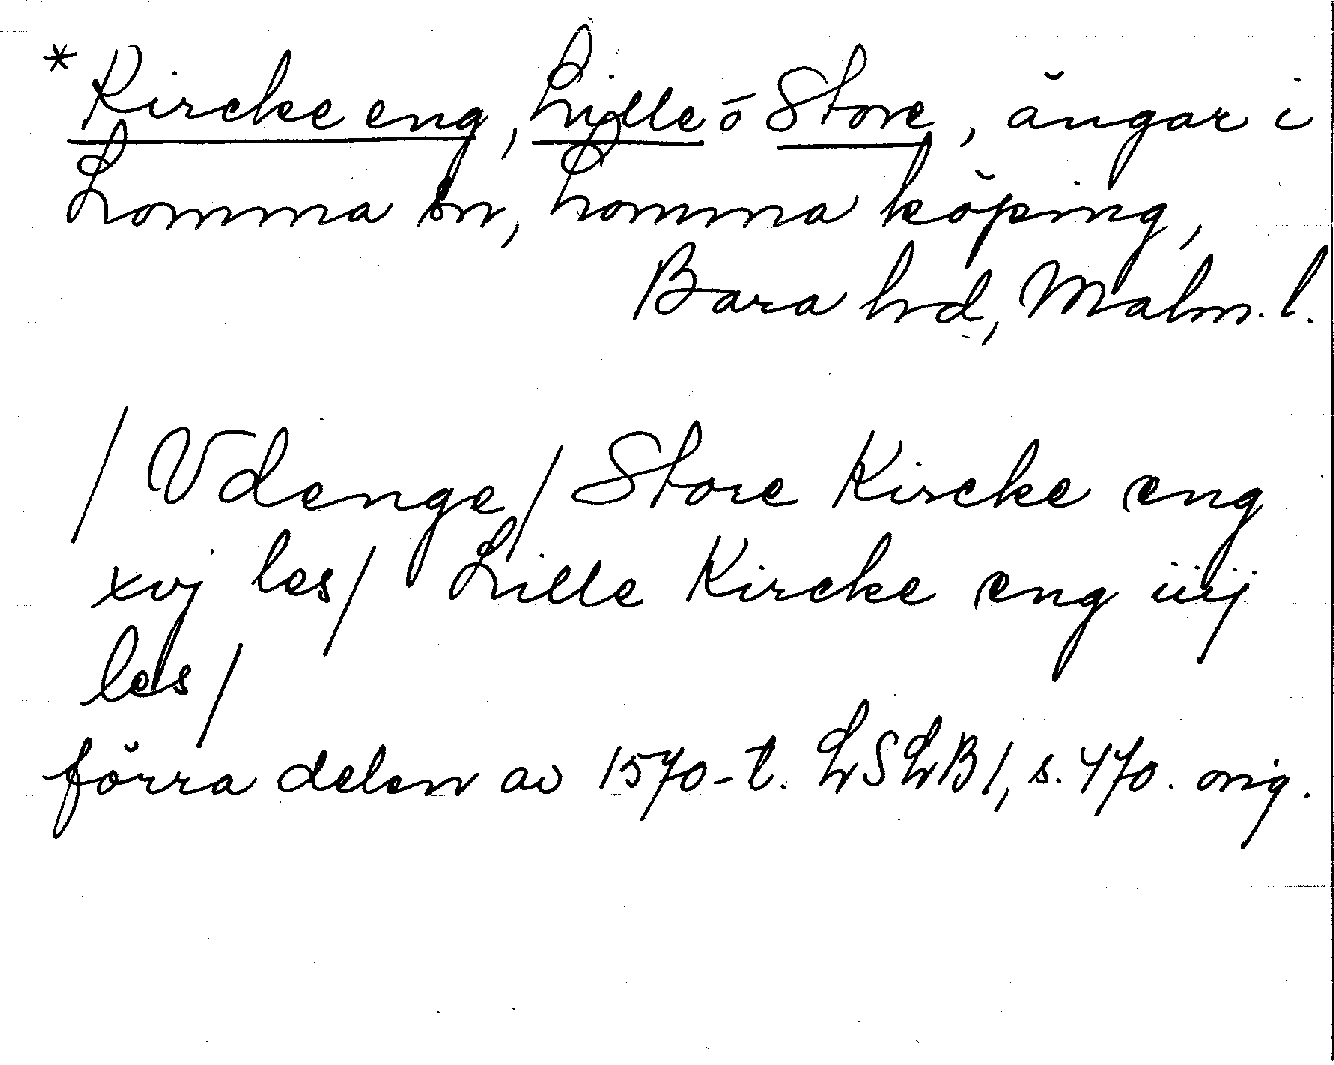 * Kircke eng, Lille o Store, ängar i
Lomma sn, Lomma köping,
Bara hd, Malm. l.
/ Vdenge / Store Kircke eng
xvj les / Lille Kircke eng iiij
les /
förra delen av 1570-t. LSLB 1, s. 470. orig.